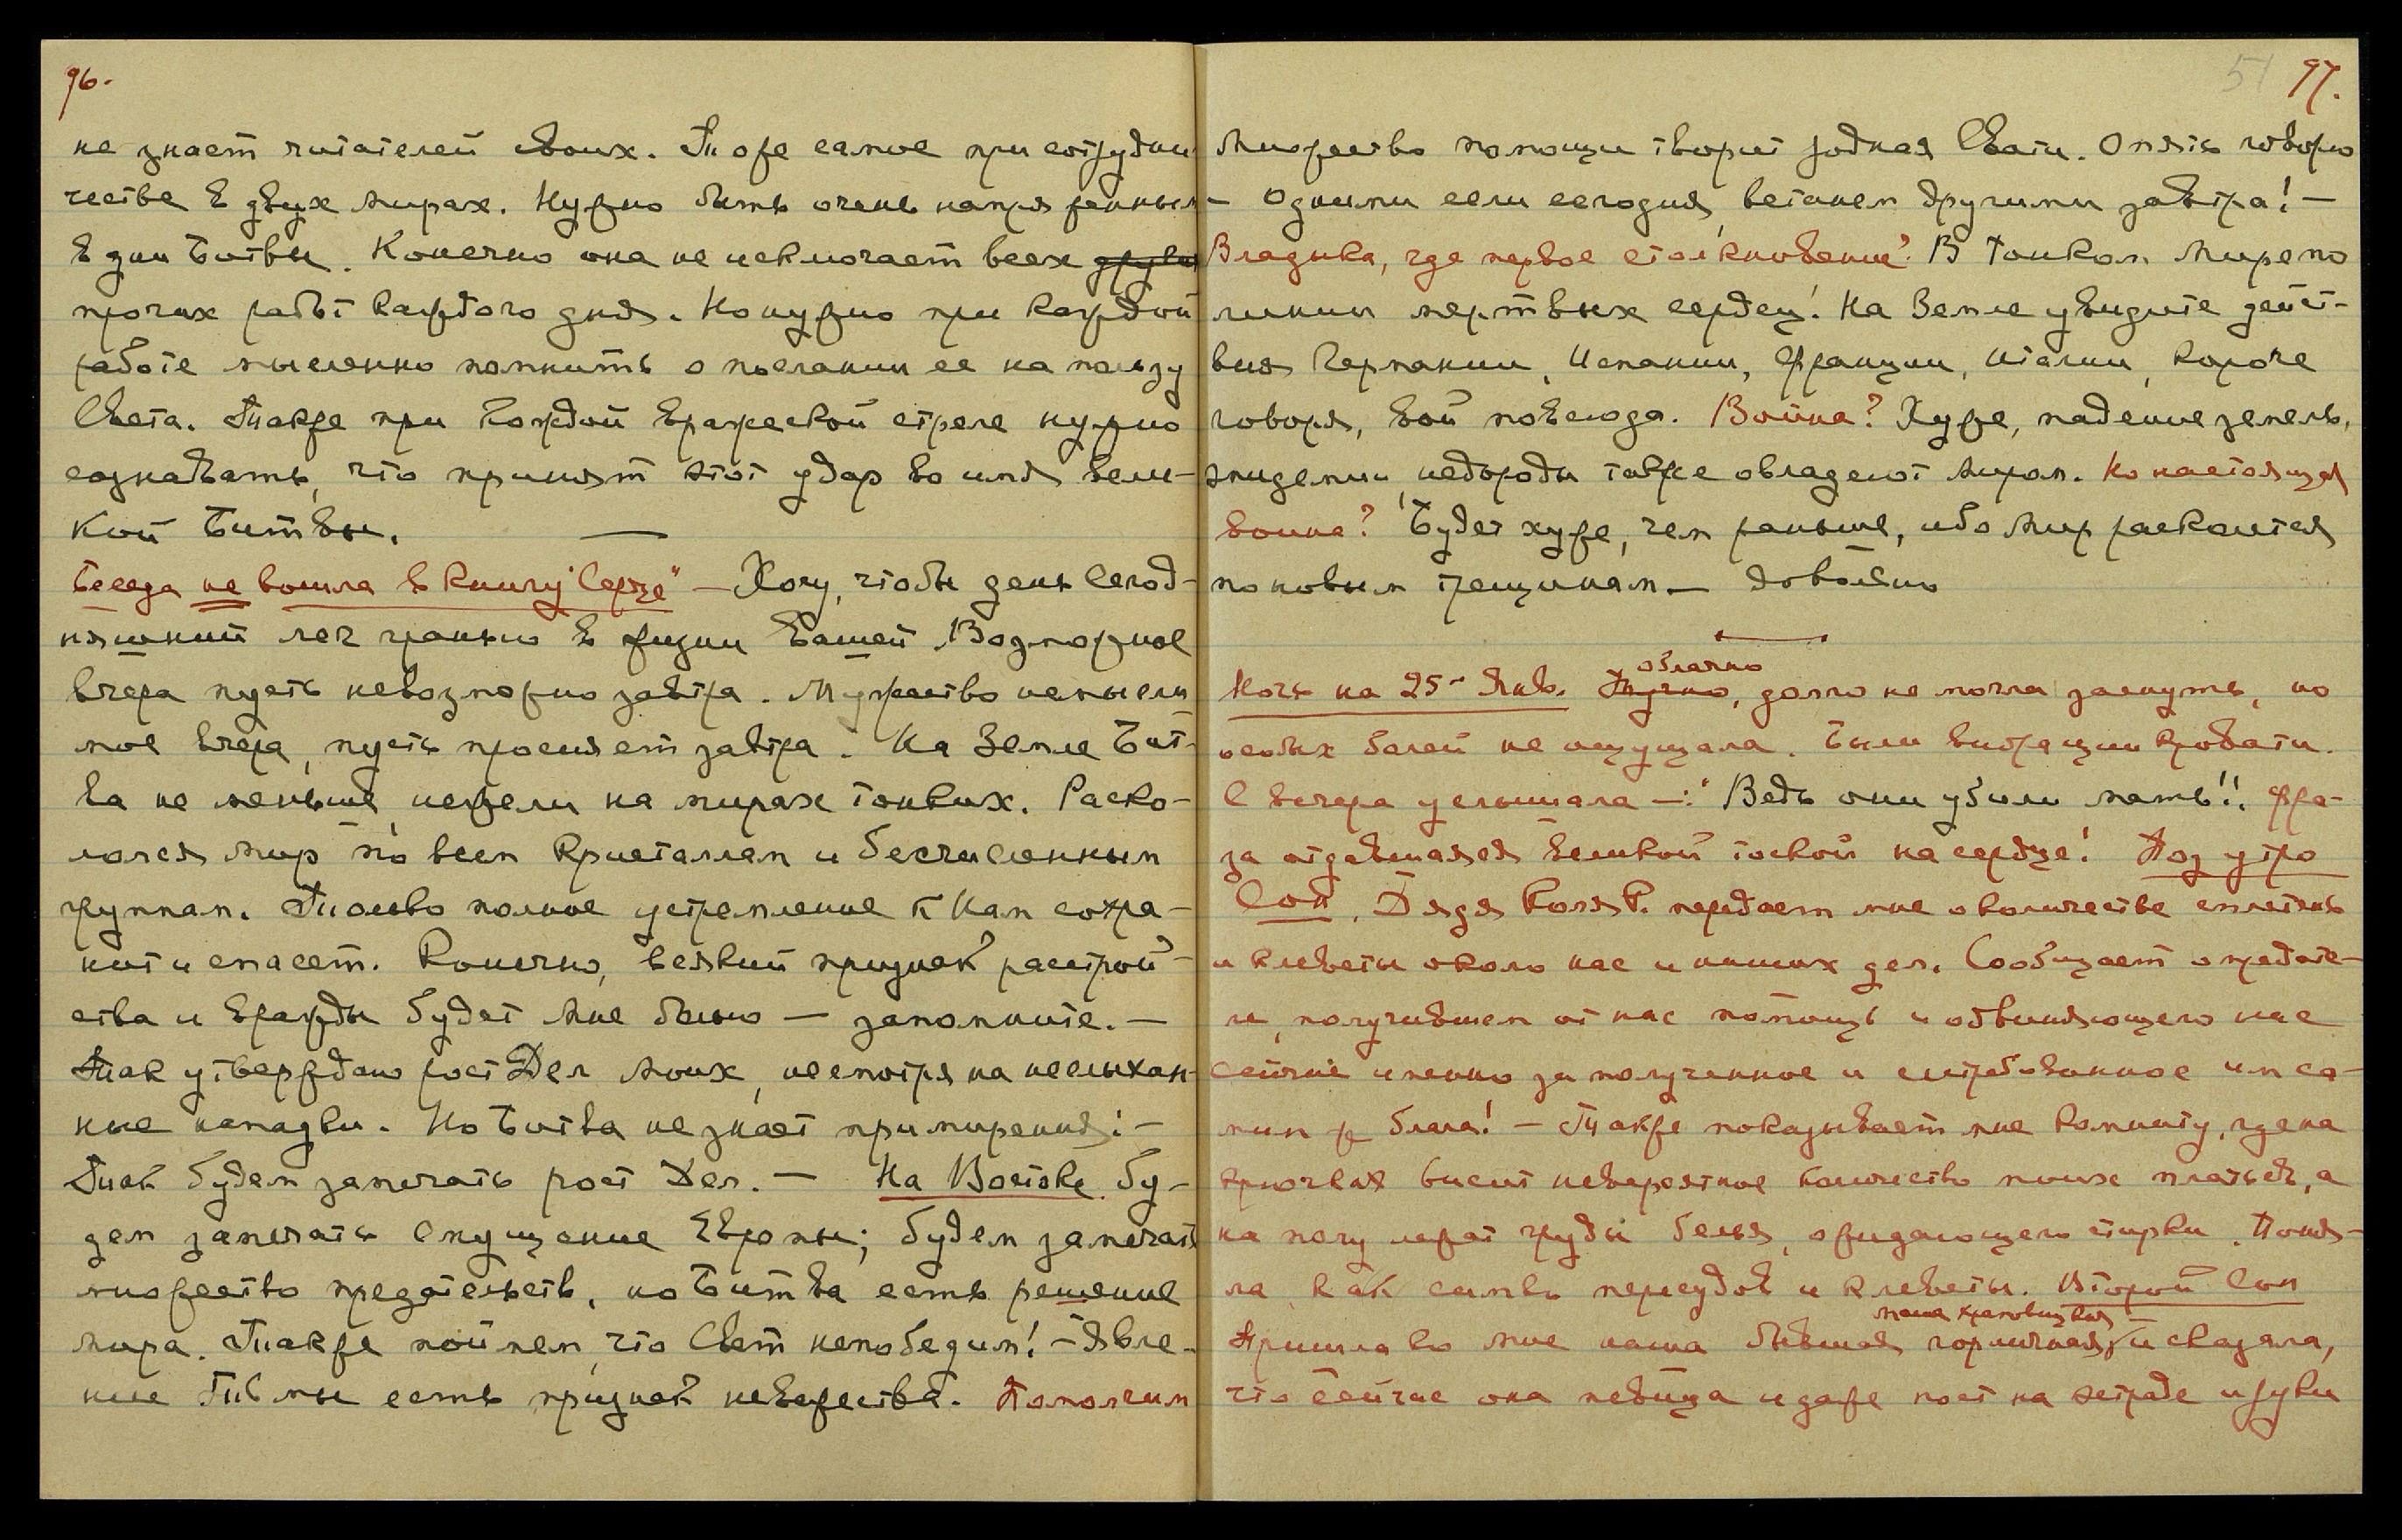 96.
не знает читателей своих. То же самое при сотрудни-
честве в двух мирах. Нужно быть очень напряженным
в дни Битвы. Конечно она не исключает всех других
прочих работ каждого дня. Но нужно при каждой
работе мысленно помнить о послании ее на пользу
Света. Также при каждой вражеской стреле нужно
сознавать, что принят этот удар во имя вели-
кой Битвы. —
Беседа не вошла в книгу "Сердце" — Хочу, чтобы день сегод-
няшний лег гранью в жизни вашей. Возможное
вчера пусть невозможно завтра. Мужество немысли
мое вчера, пусть просияет завтра. На Земле Бит-
ва не меньше, нежели на мирах тонких. Раско-
лолся мир по всем кристаллам и бесчисленным
группам. Только полное устремление к Нам сохра-
нит и спасет. Конечно, всякий признак расстрой-
ства и вражды будет Мне больно — запомните. —
Так утверждаю рост Дел Моих, несмотря на неслыхан-
ные нападки. Но Битва не знает примирения! —
Так будем замечать рост Дел. — На Востоке бу-
дем замечать смущение Европы; будем замечать
множество предательств, но Битва есть решение
мира. Также поймем, что Свет непобедим! — Явле-
ние Тьмы есть признак невежества. Помолчим
51 97.
Множество помощи творит зодчая Свати. Опять говорю
— Одними сели сегодня, встанем другими завтра! —
Владыка, где первое столкновение? В Тонком Мире по
линии мертвых сердец! На Земле увидите дейст-
вия Германии, Испании, Франции, Италии, короче
говоря, бой повсюду. Война? Хуже, падение земель,
эпидемии, недороды также овладеют миром. Но настоящая
война? Будет хуже, чем раньше, ибо Мир расколется
по новым трещинам. — Довольно
Ночь на 25ое Янв. Тучно, облачно долго не могла заснуть, но
особых болей не ощущала. Были вибрации кровати.
С вечера услышала —: "Ведь они убили мать!! Фра-
за отдавшаяся великой тоской на сердце! Под утро
Сон. Дядя Коля Р. передает мне о количестве сплетень
и клеветы около нас и наших дел. Сообщает о предате-
ле, получившем от нас помощь и обвиняющего нас
сейчас именно за полученное и истребованное им са-
мим же блага! — Также показывает мне комнату, где на
крючках висит невероятное количество моих платьев, а
на полу лежат груды белья, ожидающего стирки. Поня-
ла, как симв. пересудов и клеветы. Второй Сон
Пришла ко мне наша бывшая горничная и сказала,
что сейчас она певица и даже поет на эстраде и руки